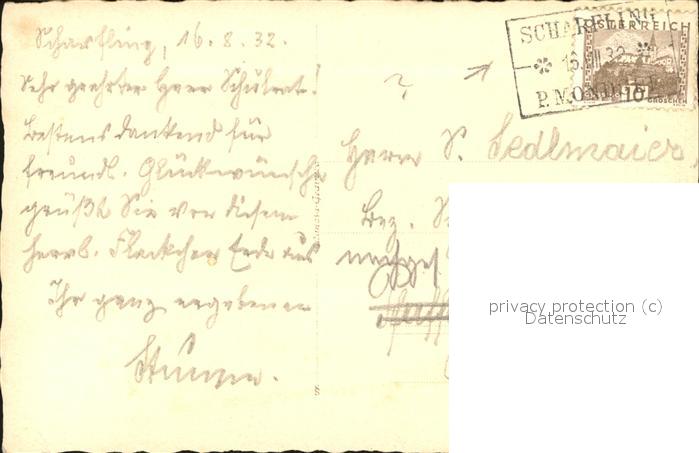 Scharfling, 16.8.32.
Sehr geehrter Herr Schulrat!
Bestens dankend für
freundl. Glückwünsche
grüßt Sie von diesem
herrl. Fleckchen Erde aus
Ihr ganz ergebener
SCHARFLING
ÖSTERREICH
P. MOND
10
GROSCHEN
?
Herrn S. Sedlmaier,
Bez. S
nachges
privacy protection (c)
Datenschutz